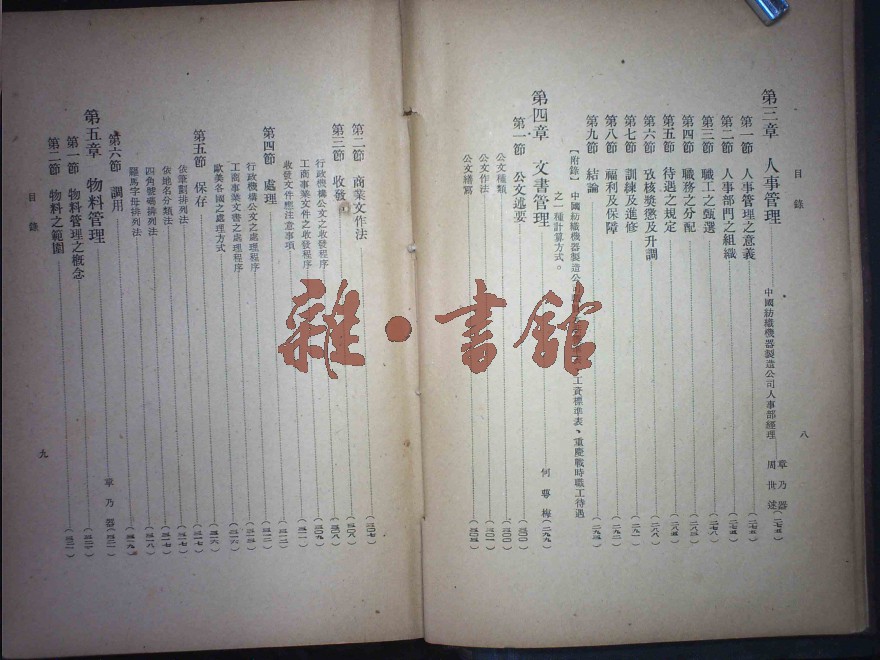 目錄
八
第三章 人事管理
中國紡織機器製造公司人事部經理
章乃器
周世述(二七五)
第一節 人事管理之意義(二七五)
第二節 人事部門之組織(二七五)
第三節 職工之甄選(二七八)
第四節 職務之分配(二八三)
第五節 待遇之規定(二八五)
第六節 攷核獎懲及升調(二八八)
第七節 訓練及進修(二九一)
第八節 福利及保障(二九二)
第九節 結論(二九四)
【附錄】 中國紡織機器製造公司
工資標準表、重慶戰時職工待遇
之一種計算方式。
第四章 文書管理
何尊梅(二九九)
第一節 公文述要(三〇〇)
公文種類(三〇〇)
公文作法(三〇一)
公文繕寫(三〇四)
第二節 商業文作法(三〇七)
第三節 收發(三〇八)
行政機構公文之收發程序(三〇九)
工商事業文件之收發程序(三一一)
收發文件應注意事項(三一二)
第四節 處理(三一三)
行政機構公文之處理程序
工商事業文書之處理程序(三一六)
歐美各國之處理方式(三一六)
第五節 保存(三一七)
依筆劃排列法(三一七)
依地名分類法(三一七)
四角號碼排列法(三一八)
羅馬字母排列法(三一九)
第六節 調用
第五章 物料管理
章乃器
第一節 物料管理之概念
第二節 物料之範圍
目錄
九
雜·書館